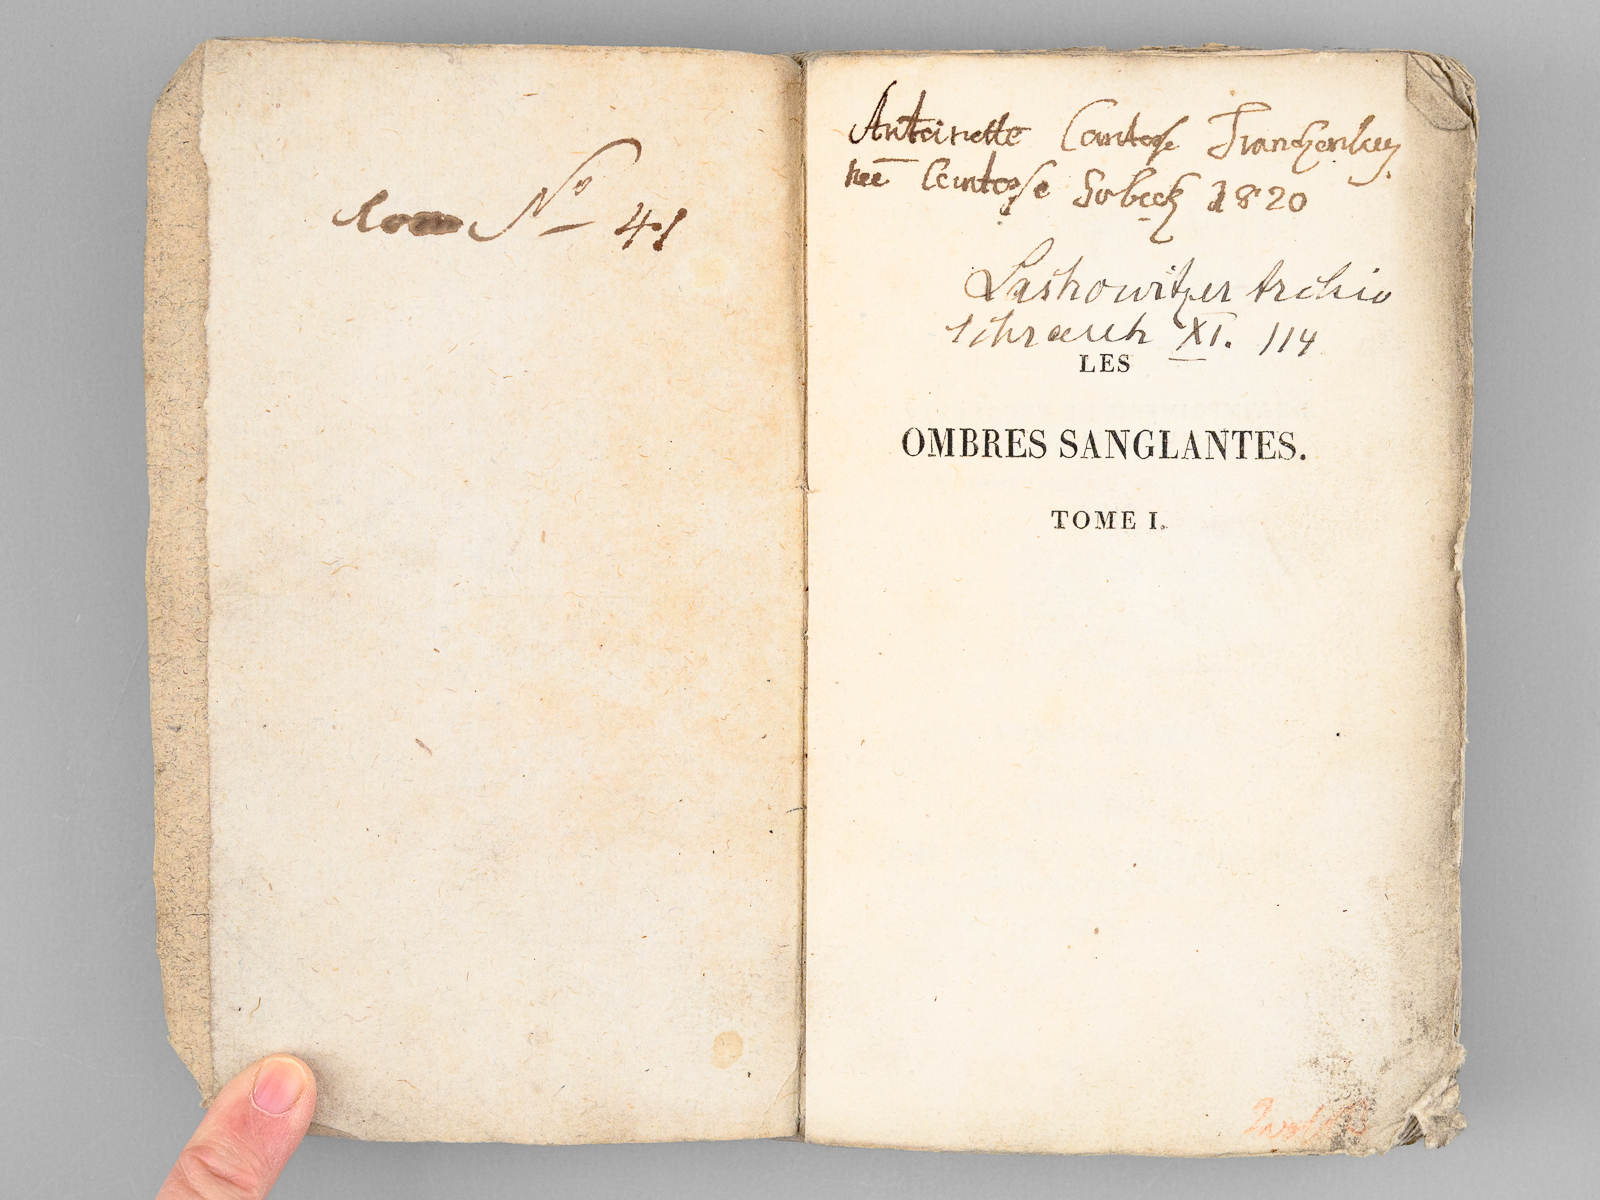 No 41
Antoinette Comtesse Franckenberg
née Comtesse Sobeck 1820
Laskowitzer Archiv
schrank XI. 114
LES
OMBRES SANGLANTES.
TOME I.